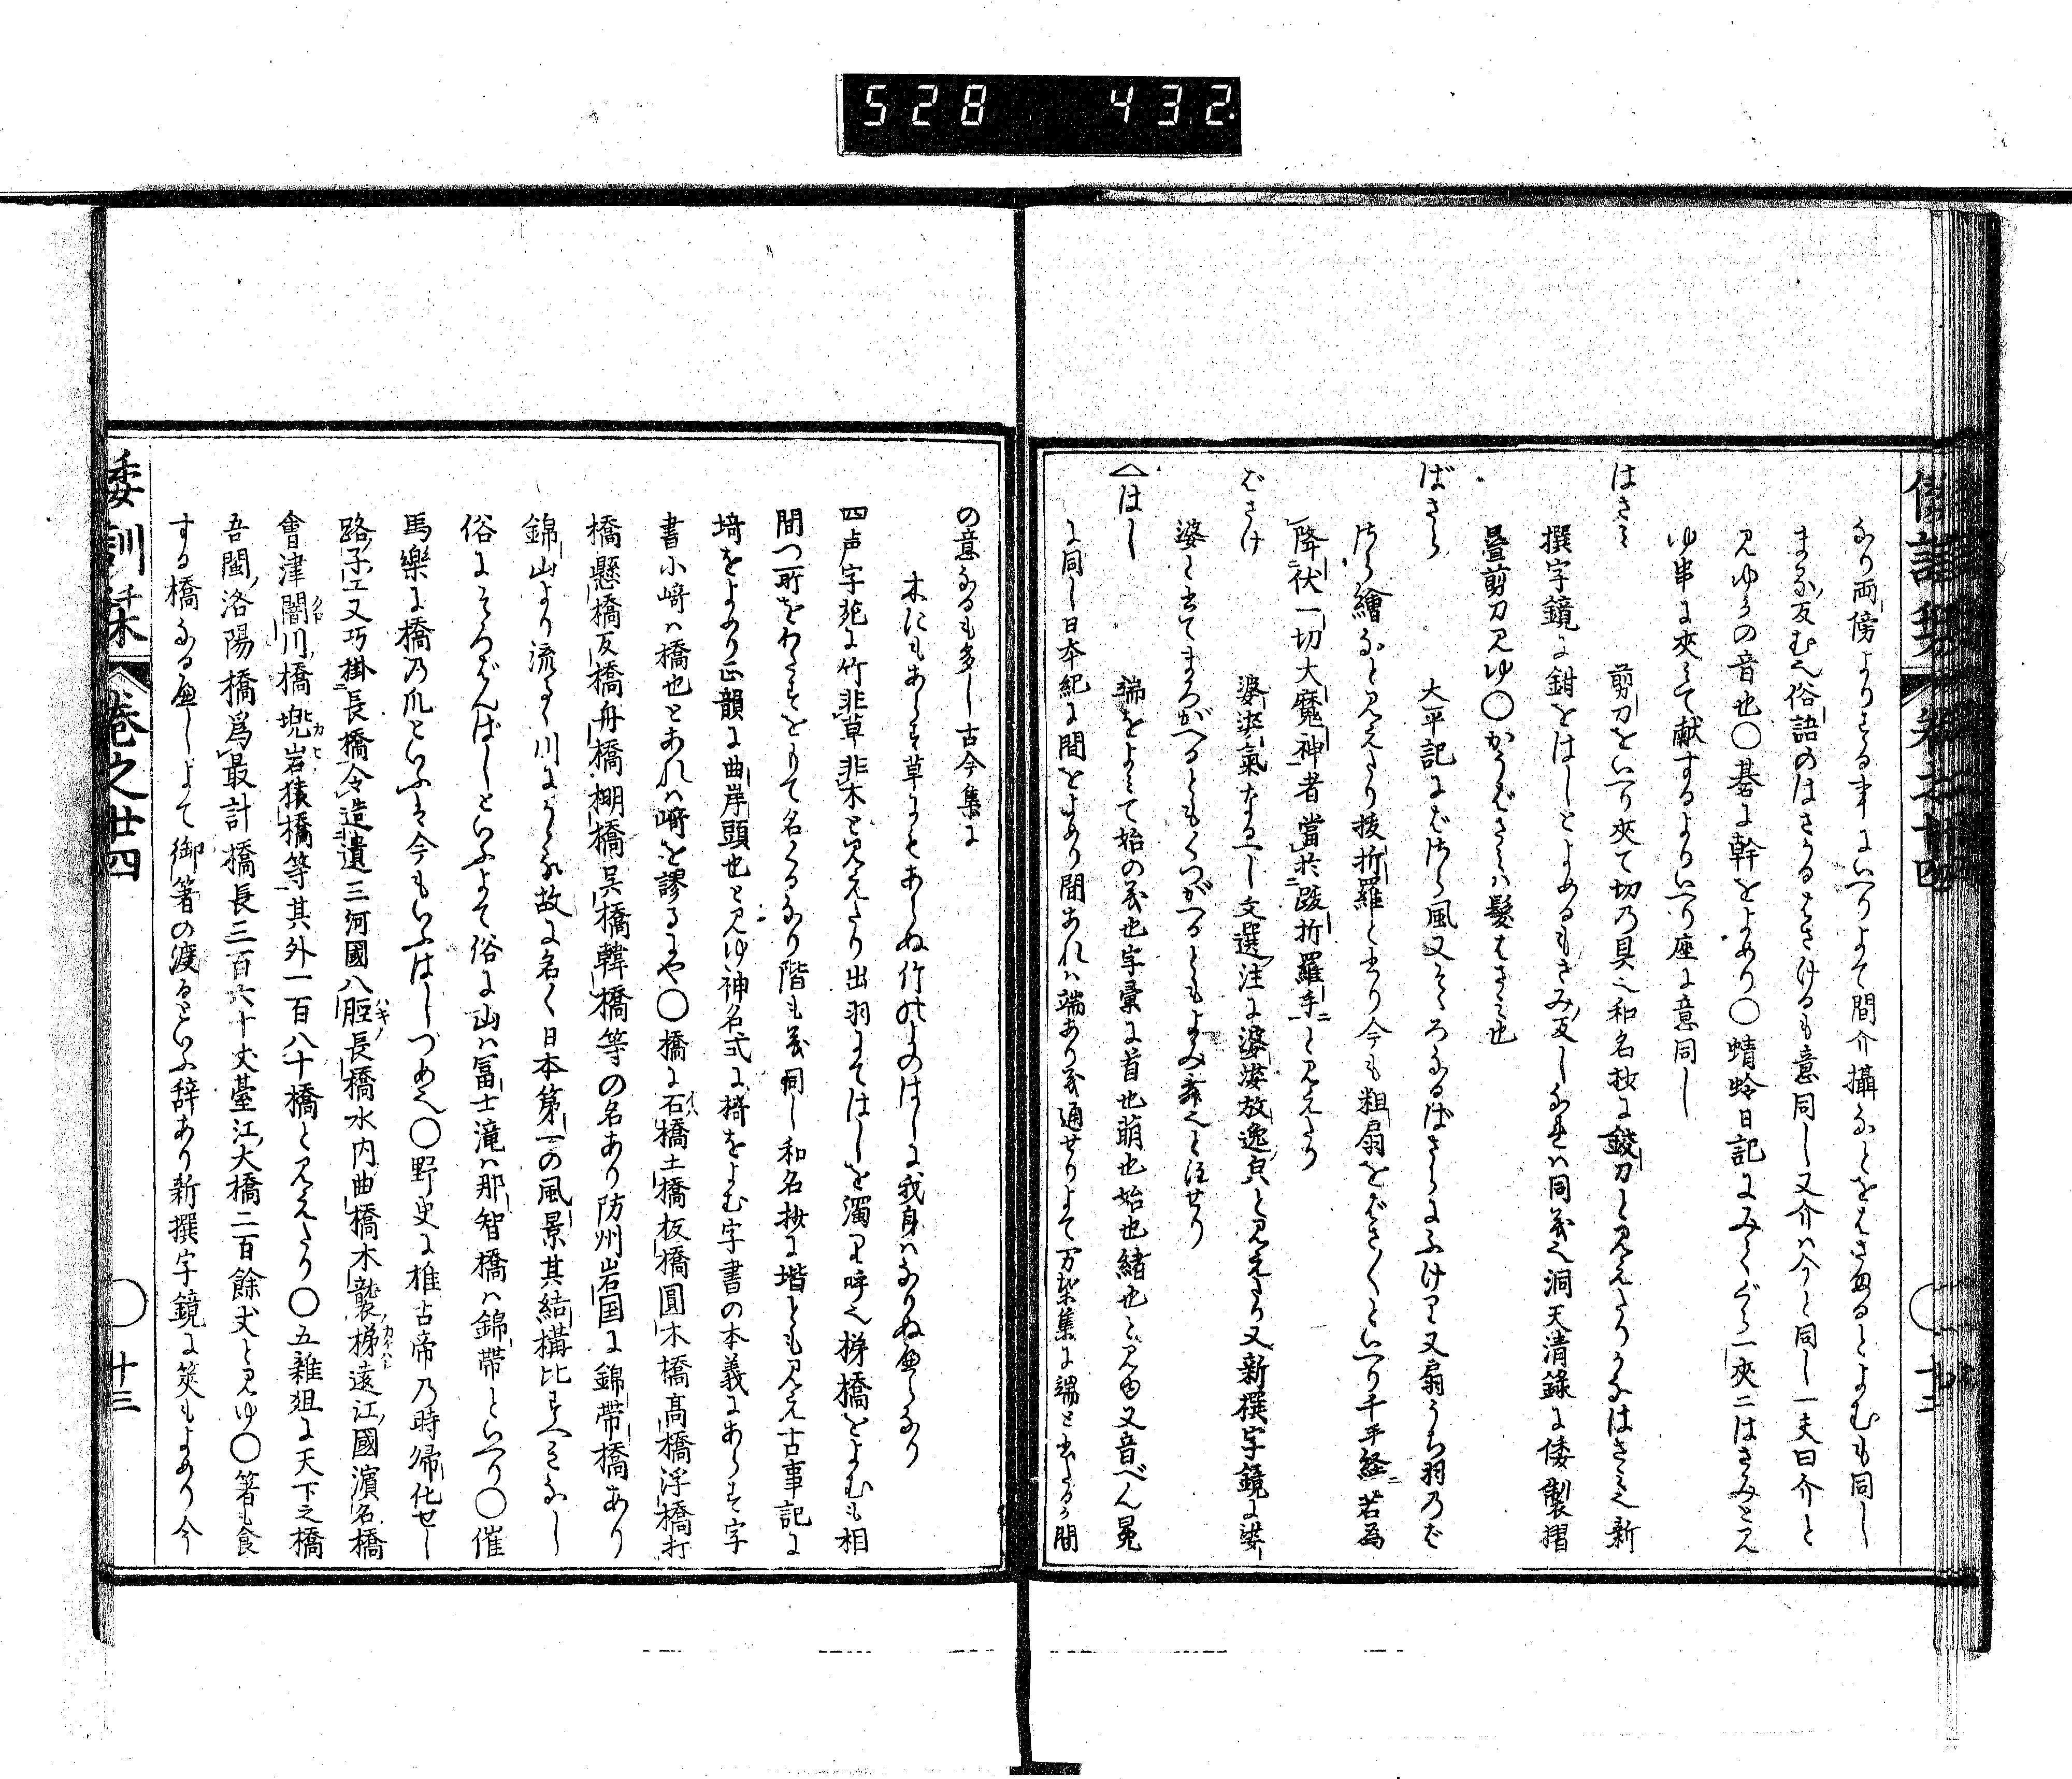 528 432
なり両傍よりする事にいへりよて間介攝なとをはさめるとよむも同し
まみ反む也俗語のはさかるはさけるも意同し又介ハ个と同し一夫曰介と
見ゆうの音也〇碁に幹をよめり〇蜻蛉日記にみくゞら一夾二はさみと見え
ゆ串に夾みて献するよりいへり座に意同し
はさみ 剪刀をいへり夾て切乃具也和名抄に鋏刀と見えたりかなはさみ也新
撰字鏡に鉗をはしとよめるもきみ反しなれは同義也洞天清録に倭製摺
疊剪刀見ゆ〇かうばさみハ髪はさみ也
ばさら 大平記にばさら風又そゝろなるばさらにふけり又扇うち羽乃ば
さら繪なと見えたり抜折羅と書り今も粗扇をばさ〱といへり千手経若為
降伏一切大魔神者當於跋折羅手と見えたり
ばさけ 婆娑氣なるへし文選注に婆娑放逸皃と見えたり又新撰字鏡に婆
婆と書てまろがへるともくつがへるともよみ舞也と注せり
〈はし 端をよみて始の義也字彙に首也萌也始也緒也と見ゆ又音べん冕
に同し日本紀に間をよめり間あれは端あり義通せりよて万葉集に端と書たるか間
倭訓栞 巻之廿四
の意なるも多し古今集に
木にもあらす草にもあらぬ竹のよのはしに我身はなりぬへらなり
四声字苑に竹非草非木と見えたり出羽にてはしを濁り呼也梯橋をよむも相
間つ所をわたすをもて名くるなり階も義同し和名抄に堦とも見え古事記に
埼をよめり正韻に曲岸頭也と見ゆ神名式に椅をよむ字書の本義にあらす字
書小﨑ハ橋也とあれハ﨑を謬るにや〇橋に石橋土橋板橋圓木橋高橋浮橋打
橋懸橋反橋舟橋棚橋呉橋韓橋等の名あり防州岩国に錦帯橋あり
錦山より流るゝ川にかゝる故に名く日本第一の風景其結構比すへきなし
俗にそろばんばしといふよて俗に山ハ冨士滝ハ那智橋ハ錦帯といへり〇催
馬樂に橋乃爪といふは今もいふはしづめ也〇野史に推古帝乃時帰化せし
路子工又巧掛長橋令造遣三河國八脛長橋水内曲橋木襲梯遠江國濵名橋
會津闇川橋兜岩猿橋等其外一百八十橋と見えたり〇五雜俎に天下之橋
吾閩洛陽橋爲最計橋長三百六十丈臺江大橋二百餘丈と見ゆ〇箸も食
する橋なるへしよて御箸の渡るといふ辞あり新撰字鏡に筴もよめり今
倭訓栞 巻之廿四 廿三